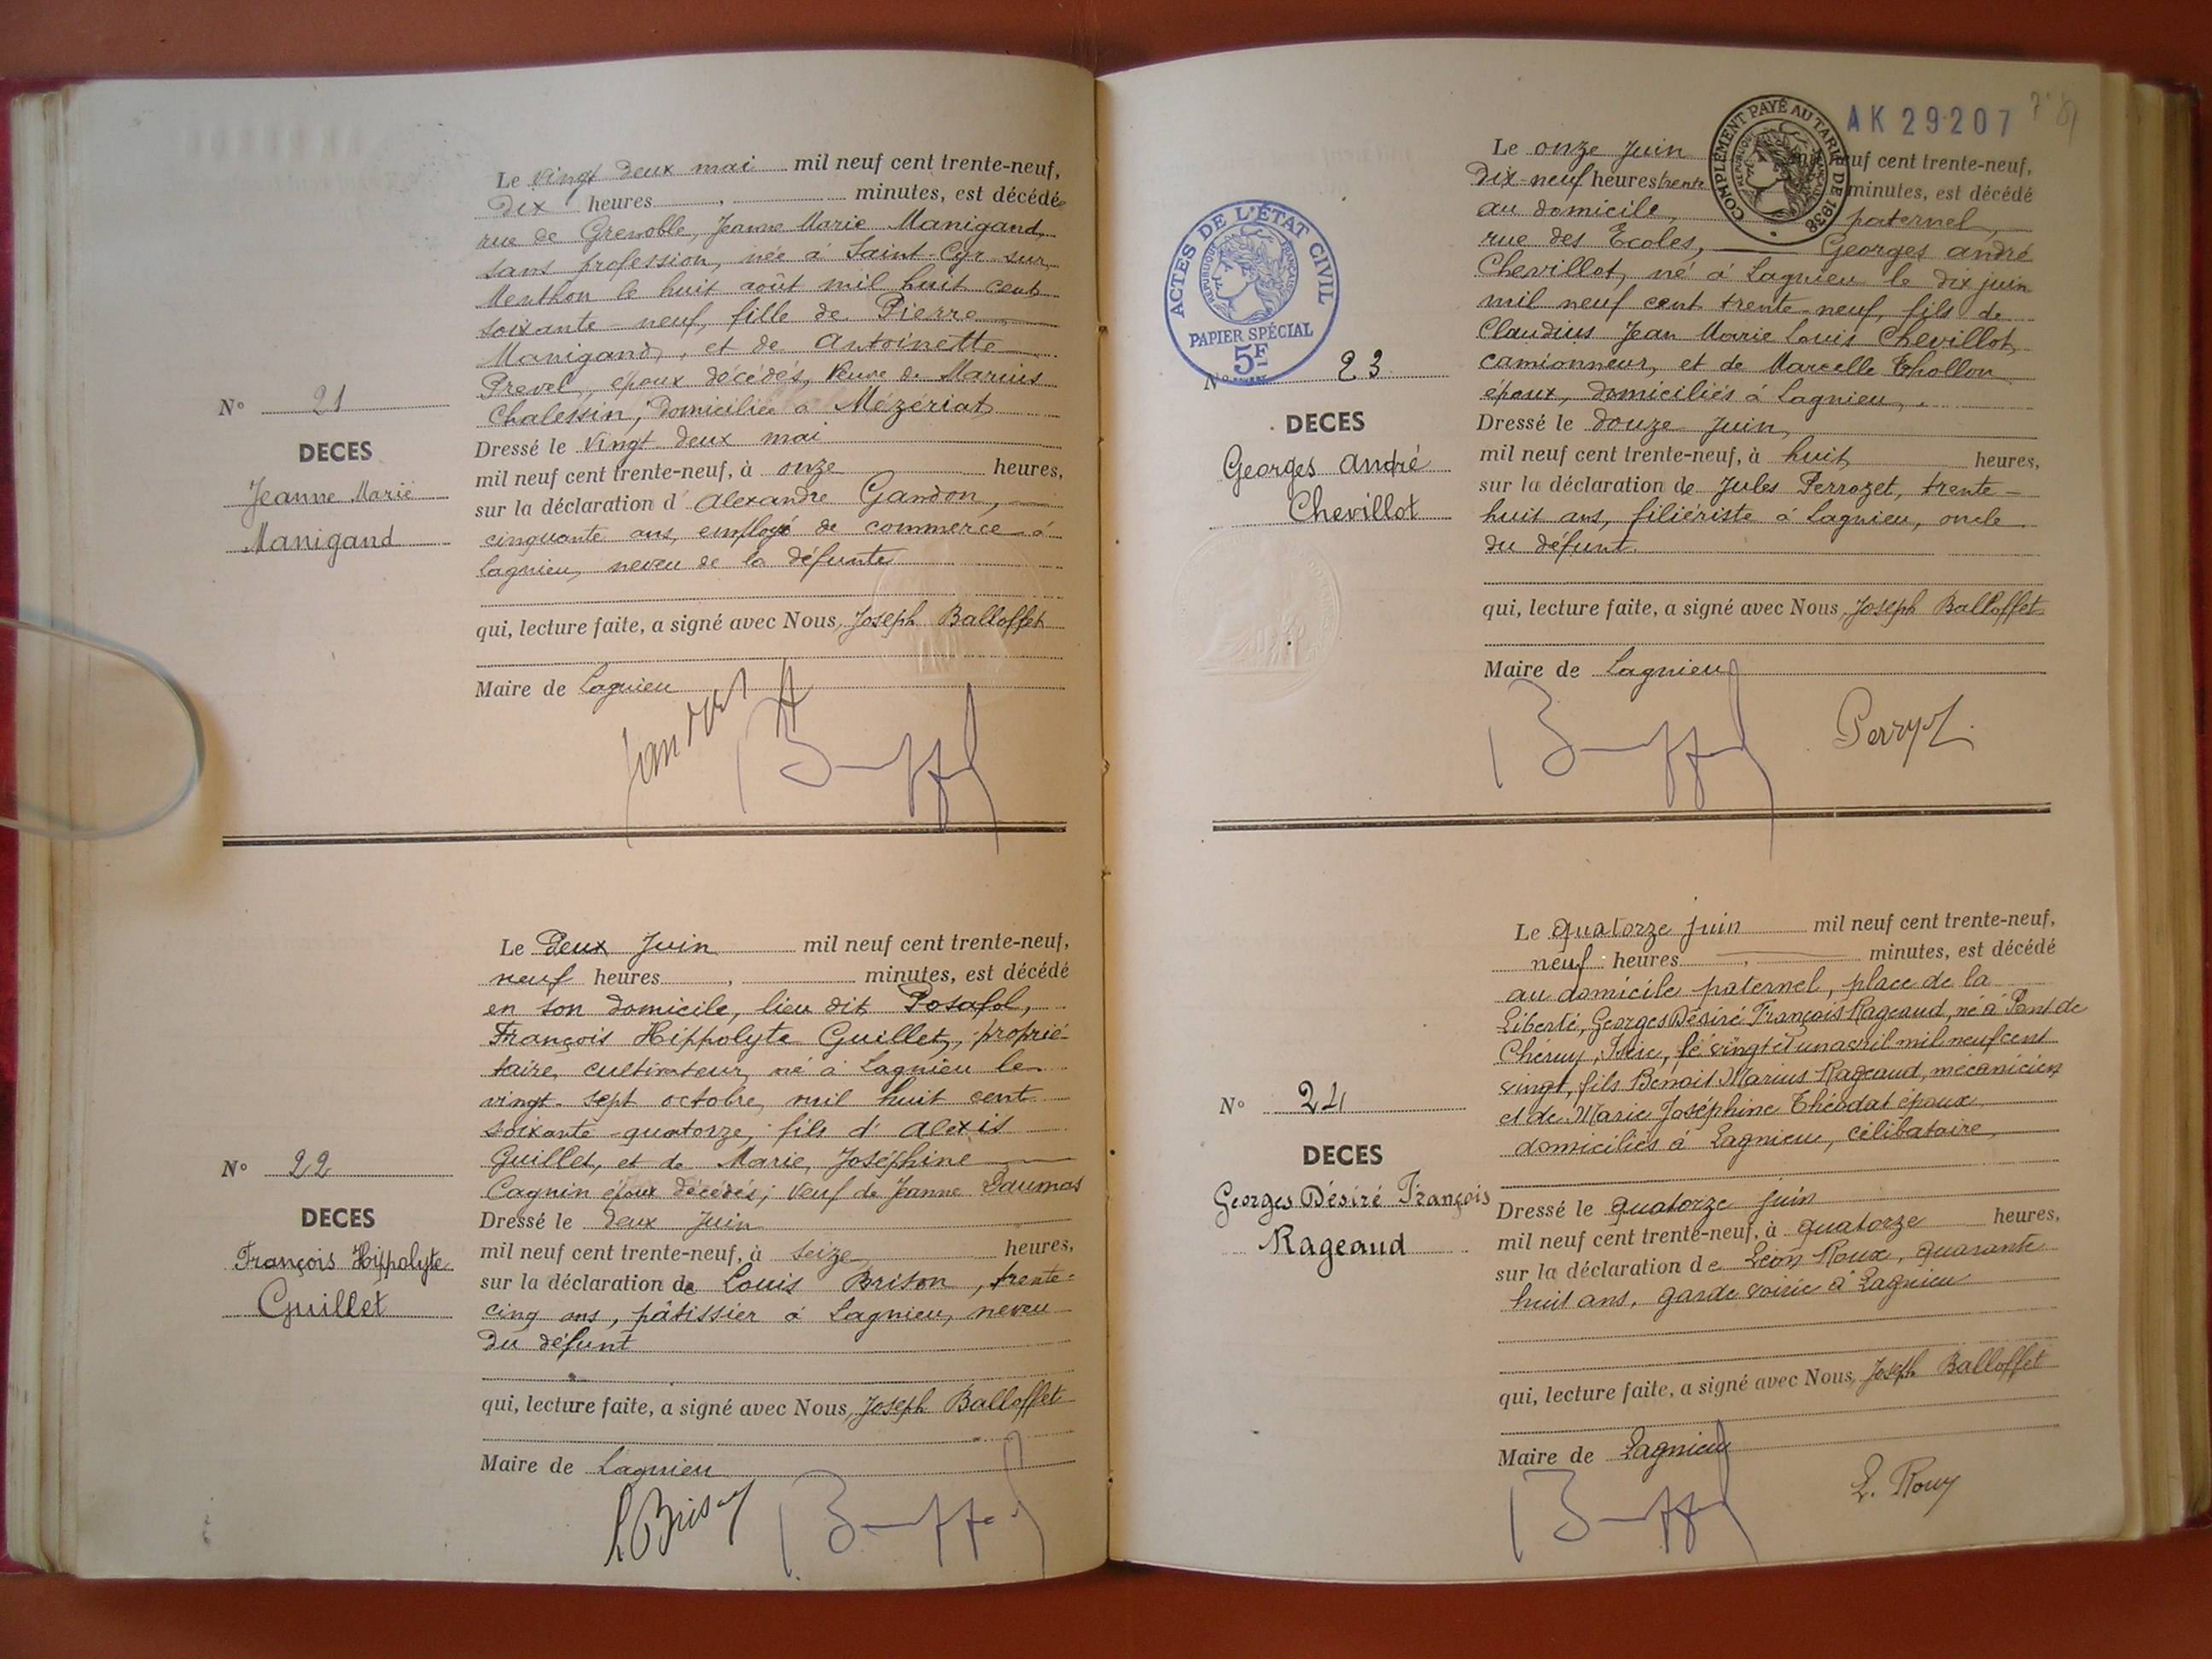 Le vingt deux mai mil neuf cent trente-neuf,
dix heures , minutes, est décédée
rue de Grenoble, Jeanne Marie Manigand,
sans profession, née à Saint-Cyr sur
Menthon le huit août mil huit cent
soixante-neuf, fille de Pierre
Manigand, et de Antoinette
Prevel, époux décédés, Veuve de Marius
Chalessin, domiciliée à Mézériat
N° 21
DECES
Jeanne Marie
Manigand
Dressé le vingt deux mai
mil neuf cent trente-neuf, à onze heures,
sur la déclaration d'Alexandre Gandon,
cinquante ans, employé de commerce à
Lagnieu, neveu de la défunte
qui, lecture faite, a signé avec Nous, Joseph Balloffet
Maire de Lagnieu
Le deux Juin mil neuf cent trente-neuf,
neuf heures , minutes, est décédé
en son domicile, lieu dit Posafol,
François Hippolyte Guillet, proprié-
taire, cultivateur, né à Lagnieu le
vingt-sept octobre, mil huit cent
soixante-quatorze, fils d'Alexis
Guillet, et de Marie, Joséphine
Cagnin époux décédés; veuf de Jeanne Daumas
N° 22
DECES
François Hippolyte
Guillet
Dressé le deux Juin
mil neuf cent trente-neuf, à seize heures,
sur la déclaration de Louis Brison, trente-
cinq ans, pâtissier à Lagnieu, neveu
du défunt
qui, lecture faite, a signé avec Nous, Joseph Balloffet
Maire de Lagnieu
L Brison
AK 29207
COMPLÉMENT PAYÉ AU TARIF DE 1938
RÉPUBLIQUE FRANÇAISE
Le onze Juin mil neuf cent trente-neuf,
dix-neuf heures trente minutes, est décédé
au domicile, paternel,
rue des Ecoles, Georges André
Chevillot, né à Lagnieu le dix juin
mil neuf cent trente-neuf, fils de
Claudius Jean Marie Louis Chevillot,
camionneur, et de Marcelle Thollon
époux, domiciliés à Lagnieu,
ACTES DE L'ÉTAT CIVIL
RÉPUBLIQUE FRANÇAISE
PAPIER SPÉCIAL
5F
N° 23
DECES
Georges André
Chevillot
Dressé le douze Juin,
mil neuf cent trente-neuf, à huit heures,
sur la déclaration de Jules Perrozet, trente-
huit ans, filiériste à Lagnieu, oncle
du défunt.
qui, lecture faite, a signé avec Nous, Joseph Balloffet
Maire de Lagnieu
Le quatorze juin mil neuf cent trente-neuf,
neuf heures , minutes, est décédé
au domicile paternel, place de la
Liberté, Georges Désiré François Rageaud, né à Pont de
Chéruy, Isère, le vingt et un avril mil neuf cent
vingt, fils Benoit Marius Rageaud, mécanicien
et de Marie Joséphine Théodat époux
domiciliés à Lagnieu, célibataire
N° 24
DECES
Georges Désiré François
Rageaud
Dressé le quatorze juin
mil neuf cent trente-neuf, à quatorze heures,
sur la déclaration de Léon Roux, quarante
huit ans, garde voirie à Lagnieu
qui, lecture faite, a signé avec Nous, Joseph Balloffet
Maire de Lagnieu
L. Roux